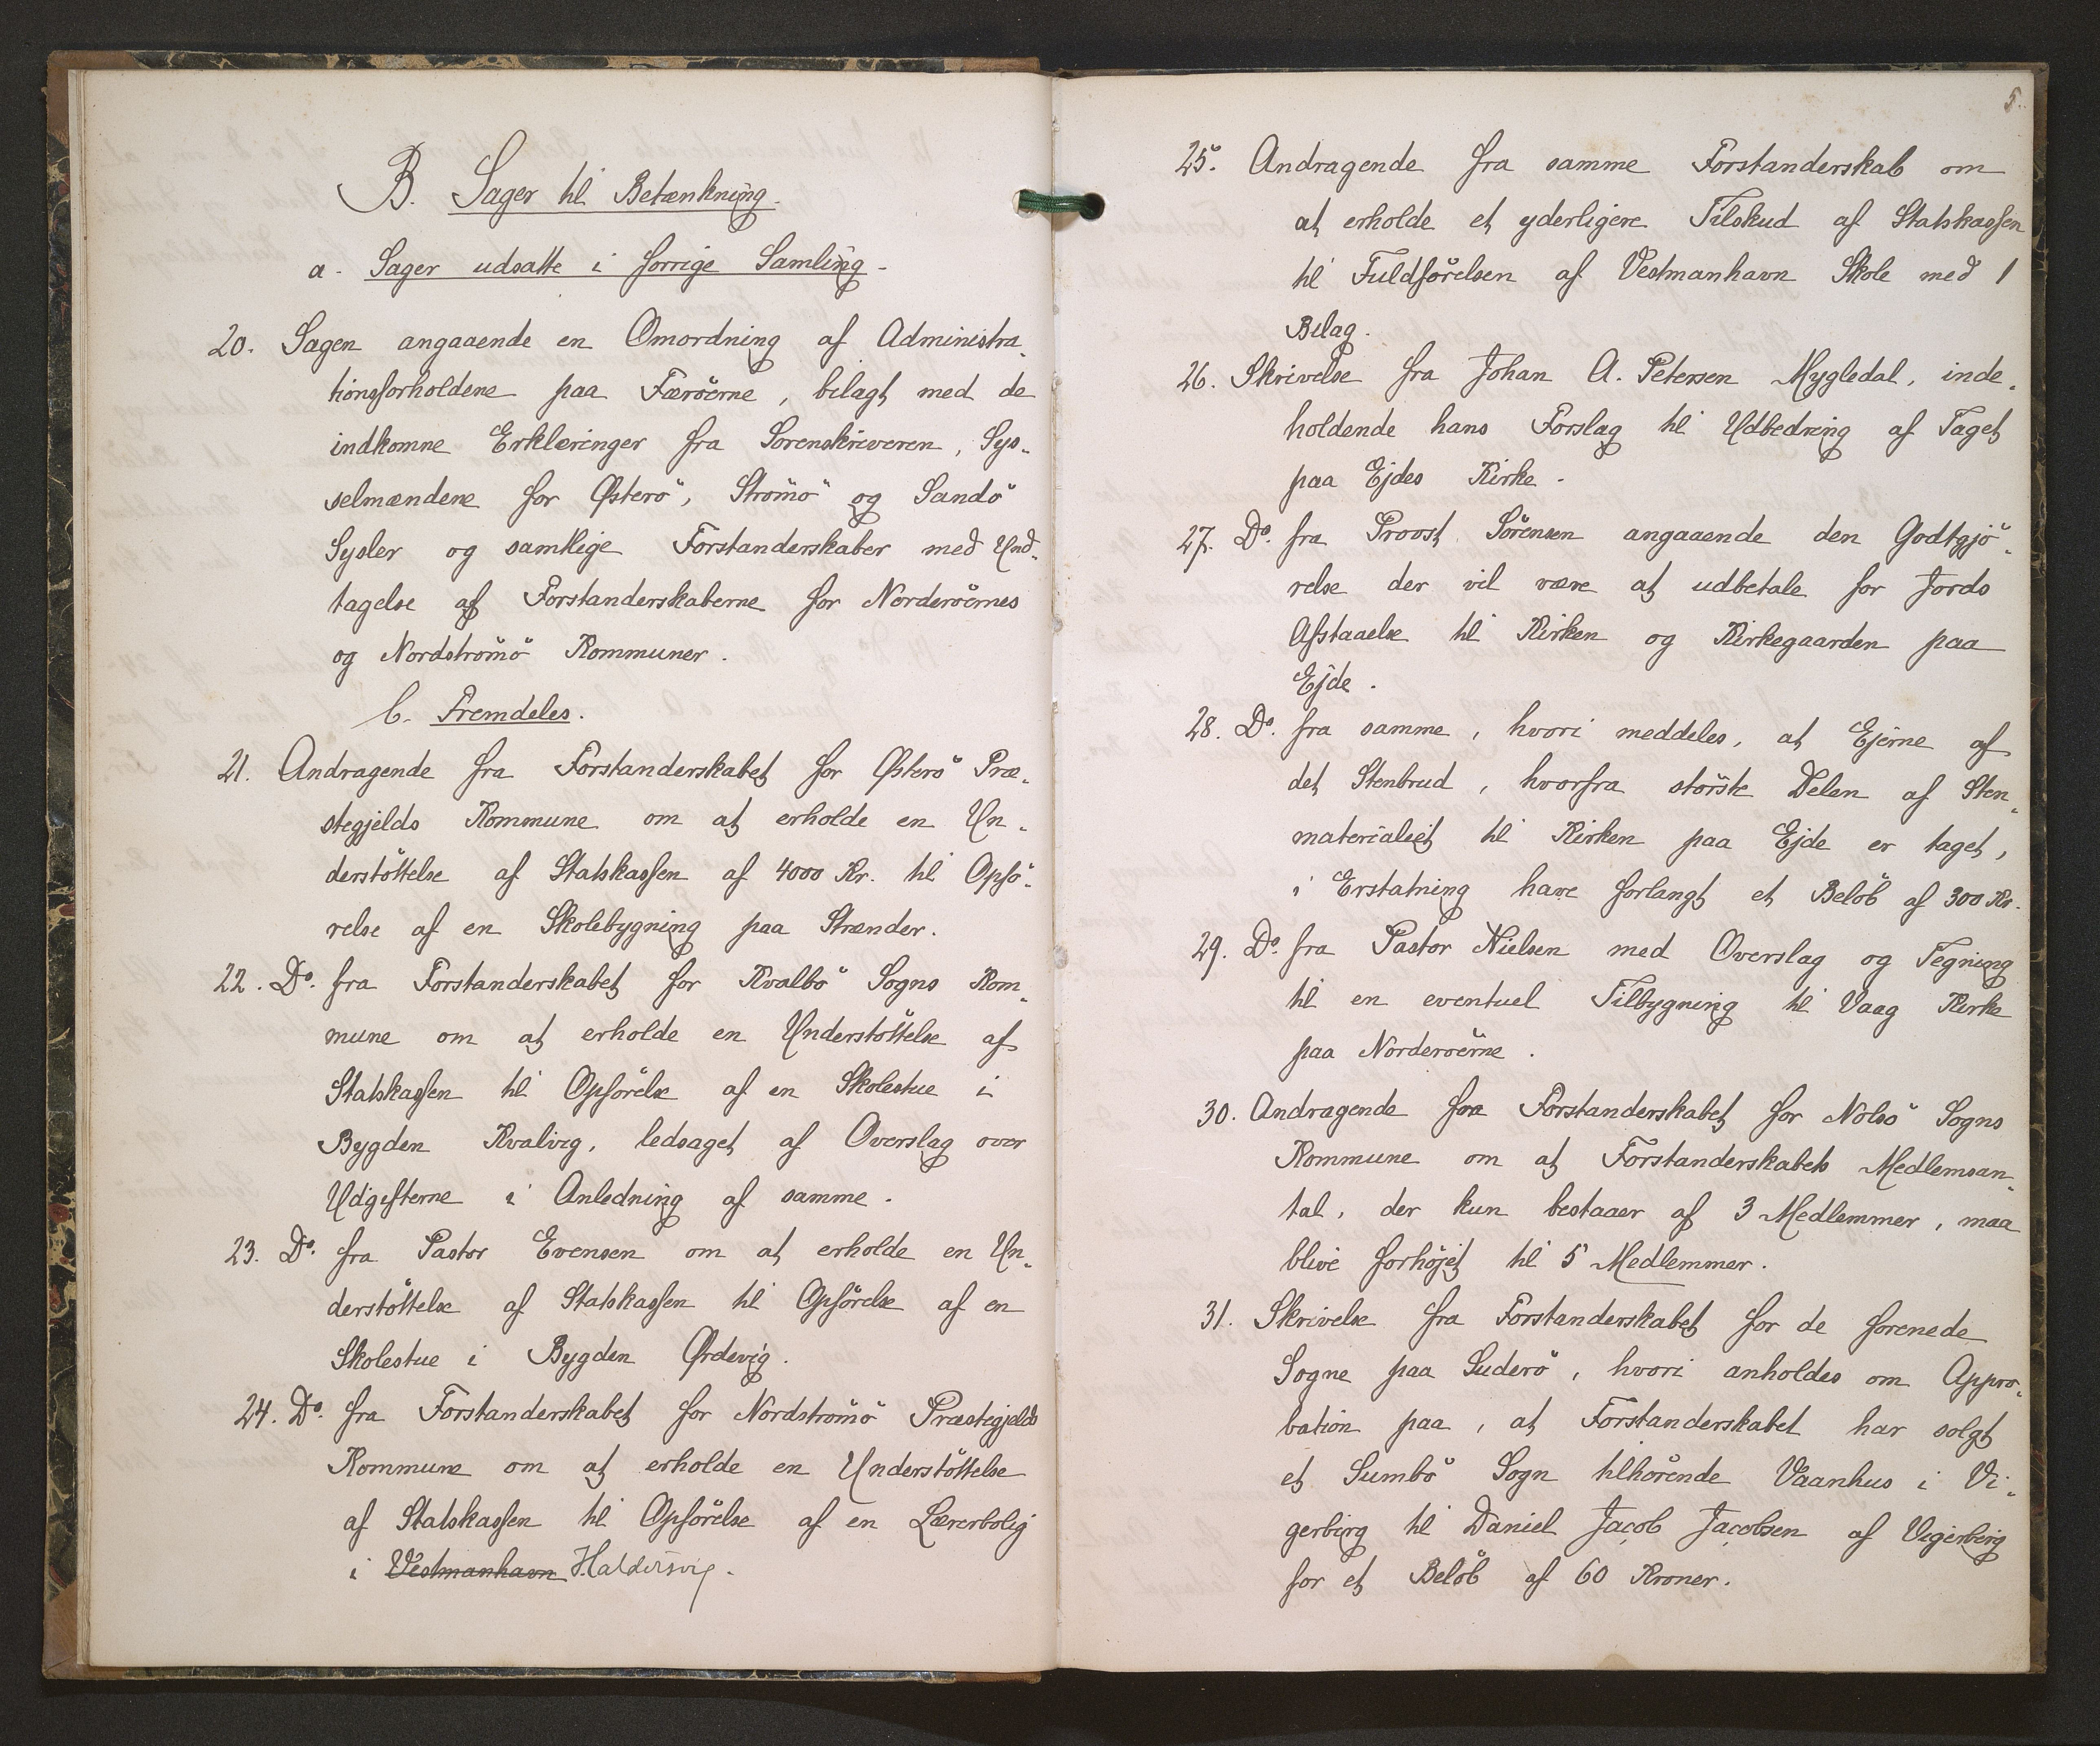 B. Sager til Betænkning.
a. Sager udsatte i forrige Samling.
20. Sagen angaaende en Omordning af Administra-
tionsforholdene paa Færöerne, bilagt med de
indkomne Erklæringer fra Sorenskriveren, Sys-
selmændene for Østerö, Strömö og Sandö
Sysler og samtlige Forstanderskaber med Und-
tagelse af Forstanderskaberne for Norderöernes
og Nordströmö Kommuner.
b. Fremdeles.
21. Andragende fra Forstanderskabet for Østerö Præ-
stegjelds Kommune om at erholde en Un-
derstöttelse af Statskassen af 4000 Kr. til Opfö-
relse af en Skolebygning paa Strænder.
22. Do. fra Forstanderskabet for Kvalbö Sogns Kom-
mune om at erholde en Understöttelse af
Statskassen til Opförelse af en Skolestue i
Bygden Kvalvig, ledsaget af Overslag over
Udgifterne i Anledning af samme.
23. Do. fra Pastor Evensen om at erholde en Un-
derstöttelse af Statskassen til Opförelse af en
Skolestue i Bygden Ørdevig.
24. Do. fra Forstanderskabet for Nordströmö Præstegjelds
Kommune om at erholde en Understöttelse
af Statskassen til Opförelse af en Lærerbolig
i Vestmanhavn Haldersvig.
5.
25. Andragende fra samme Forstanderskab om
at erholde et yderligere Tilskud af Statskassen
til Fuldförelsen af Vestmanhavn Skole med 1
Bilag.
26. Skrivelse fra Johan A. Petersen Mygledal, inde-
holdende hans Forslag til Udbedring af Taget
paa Ejdes Kirke.
27. Do. fra Provst Sörensen angaaende den Godtgjö-
relse der vil være at udbetale for Jords
Afstaaelse til Kirken og Kirkegaarden paa
Ejde.
28. Do. fra samme, hvori meddeles, at Ejerne af
det Stenbrud, hvorfra störste Delen af Sten-
materialiet til Kirken paa Ejde er taget,
i Erstatning have forlangt et Belöb af 300 Kr.
29. Do. fra Pastor Nielsen med Overslag og Tegning
til en eventuel Tilbygning til Vaag Kirke
paa Norderöerne.
30. Andragende fra Forstanderskabet for Nolsö Sogns
Kommune om at Forstanderskabets Medlemsan-
tal, der kun bestaaer af 3 Medlemmer, maa
blive forhöjet til 5 Medlemmer.
31. Skrivelse fra Forstanderskabet for de forenede
Sogne paa Suderö, hvori anholdes om Appro-
bation paa, at Forstanderskabet har solgt
et Sumbö Sogn tilhörende Vaanhus i Vi-
gerbirg til Daniel Jacob Jacobsen af Vigerbirg
for et Belöb af 60 Kroner.